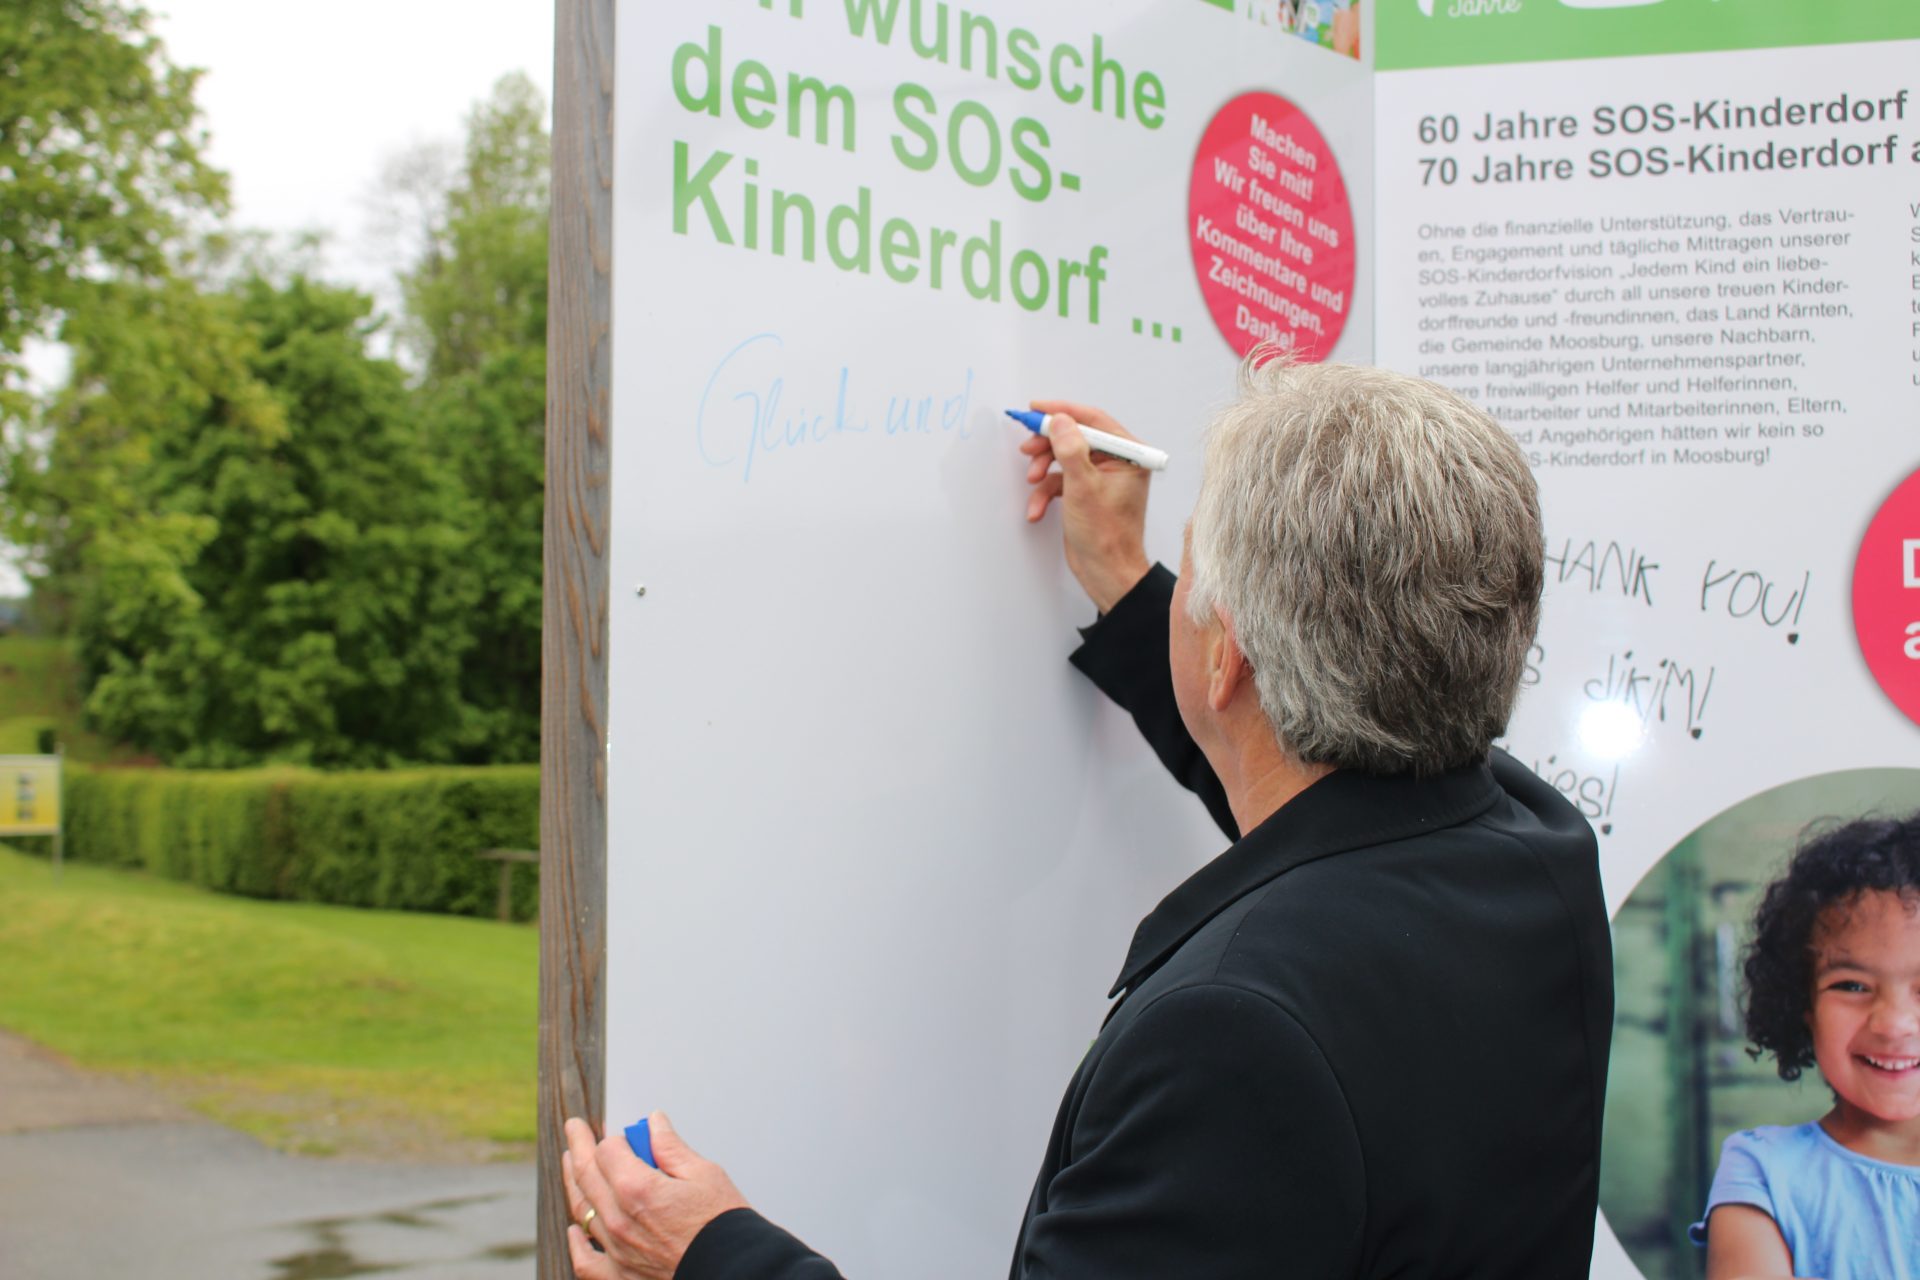 wünsche
dem SOS-
Kinderdorf ...
Machen
Sie mit!
Wir freuen uns
über Ihre
Kommentare und
Zeichnungen.
Danke!
Glück und
Jahre
60 Jahre SOS-Kinderdorf
70 Jahre SOS-Kinderdorf a
Ohne die finanzielle Unterstützung, das Vertrau-
en, Engagement und tägliche Mittragen unserer
SOS-Kinderdorfvision „Jedem Kind ein liebe-
volles Zuhause“ durch all unsere treuen Kinder-
dorffreunde und -freundinnen, das Land Kärnten,
die Gemeinde Moosburg, unsere Nachbarn,
unsere langjährigen Unternehmenspartner,
ere freiwilligen Helfer und Helferinnen,
Mitarbeiter und Mitarbeiterinnen, Eltern,
nd Angehörigen hätten wir kein so
S-Kinderdorf in Moosburg!
HANK YOU!